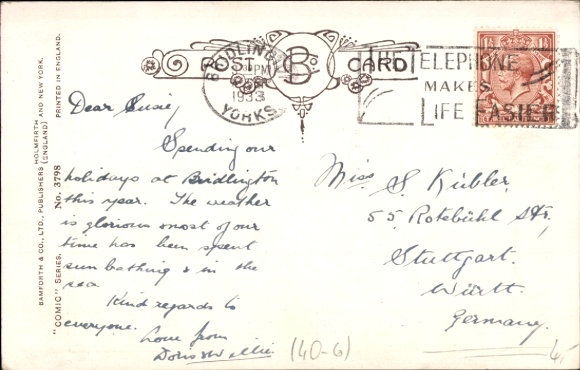 BAMFORTH & CO., LTD., PUBLISHERS HOLMFIRTH AND NEW YORK.
(ENGLAND)
PRINTED IN ENGLAND.
"COMIC" SERIES. No. 3798
POST CARD
B
BRIDLING
PM
1933
YORKS
THE TELEPHONE
MAKES
LIFE EASIER
Dear Susie,
Spending our
holidays at Bridlington
this year. The weather
is glorious & most of our
time has been spent
sun bathing & in the
sea
Kind regards to
everyone.
Love from
Doris & Willie
(40-6)
Miss S. Kübler,
55 Rotebühl Str,
Stuttgart.
Württ.
Germany.